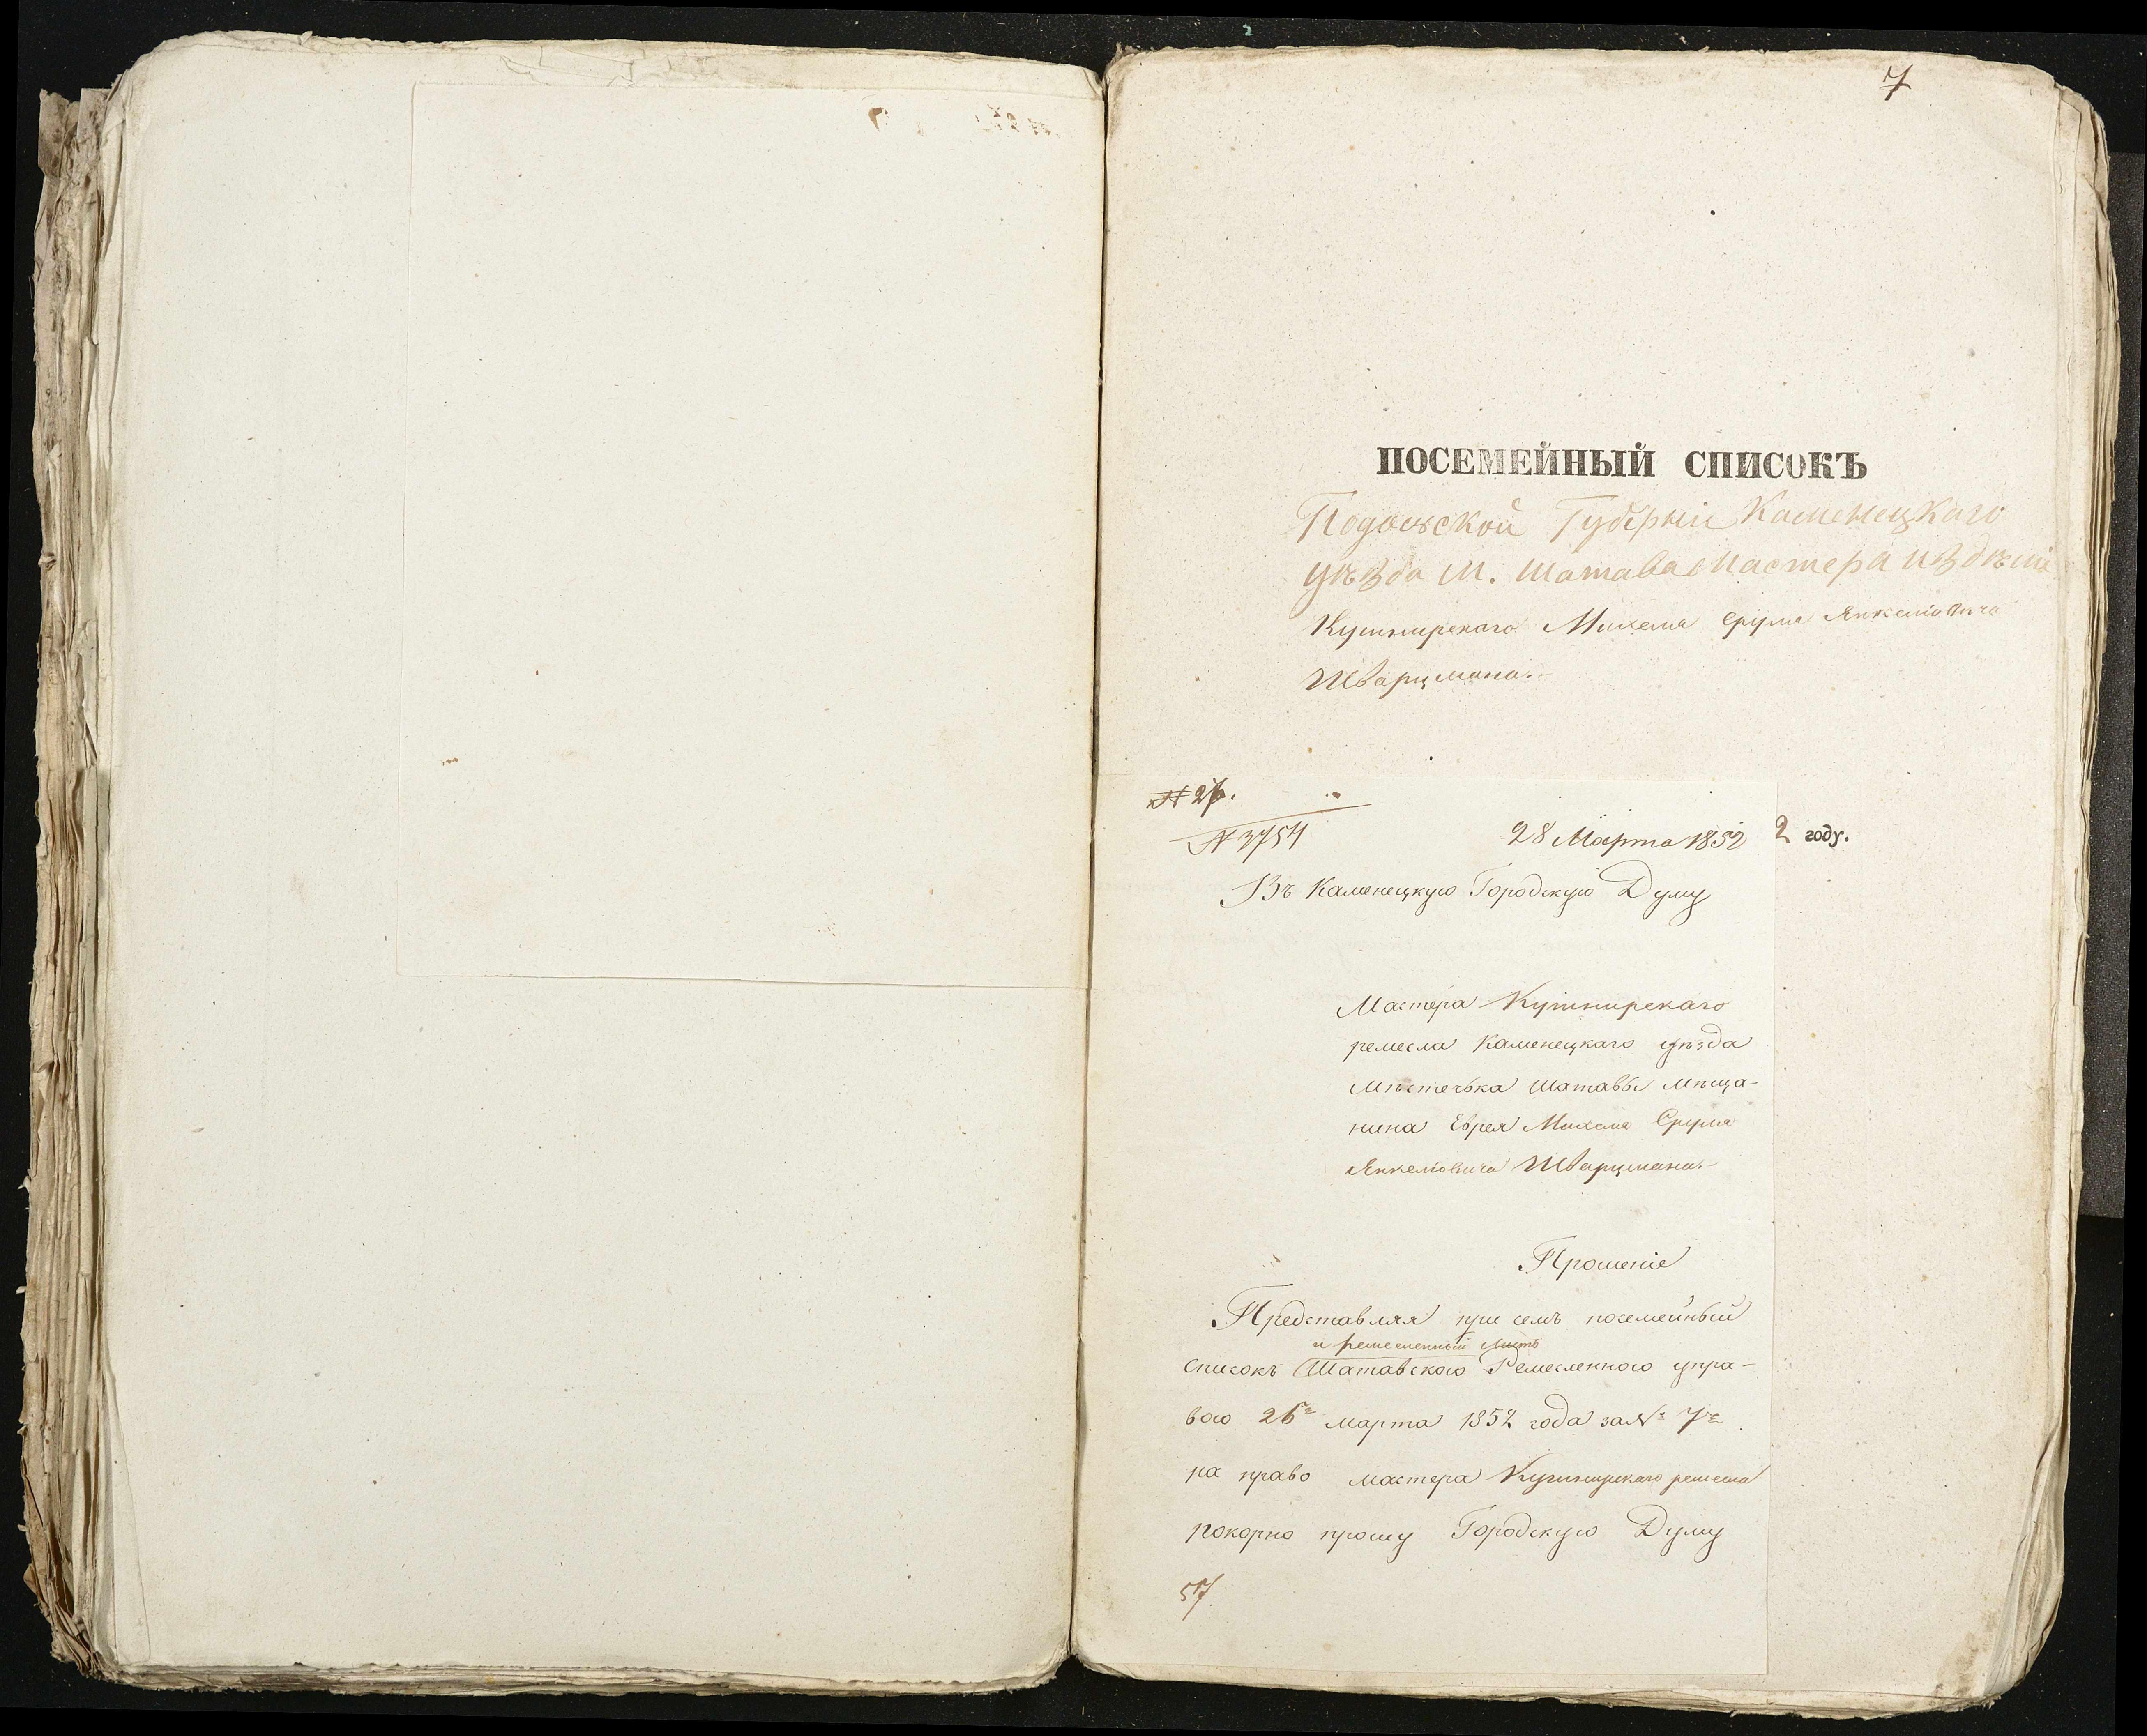 7
ПОСЕМЕЙНЫЙ СПИСОКЪ
Подольской Губерніи Каменецкаго
уѣзда М. Шатава Мастера
Кушнирскаго Михеля Сруля Янкелiовича
Шварцмана.
№ 27.
№ 3754
28 Марта 1852
2 году.
Въ Каменецкую Городскую Думу
Мастера Кушнирскаго
ремесла Каменецкаго уѣзда
Мѣстечька Шатавы мѣща-
нина Еврея Михеля Сруля
Янкелiовича Шварцмана.
Прошеніе
Представляя при семъ посемейный
и ремесленный листъ
списокъ Шатавского Ремесленного упра-
вою 26го марта 1852 года за № 7м
на право мастера Кушнирскаго ремесла
покорно прошу Городскую Думу
57.